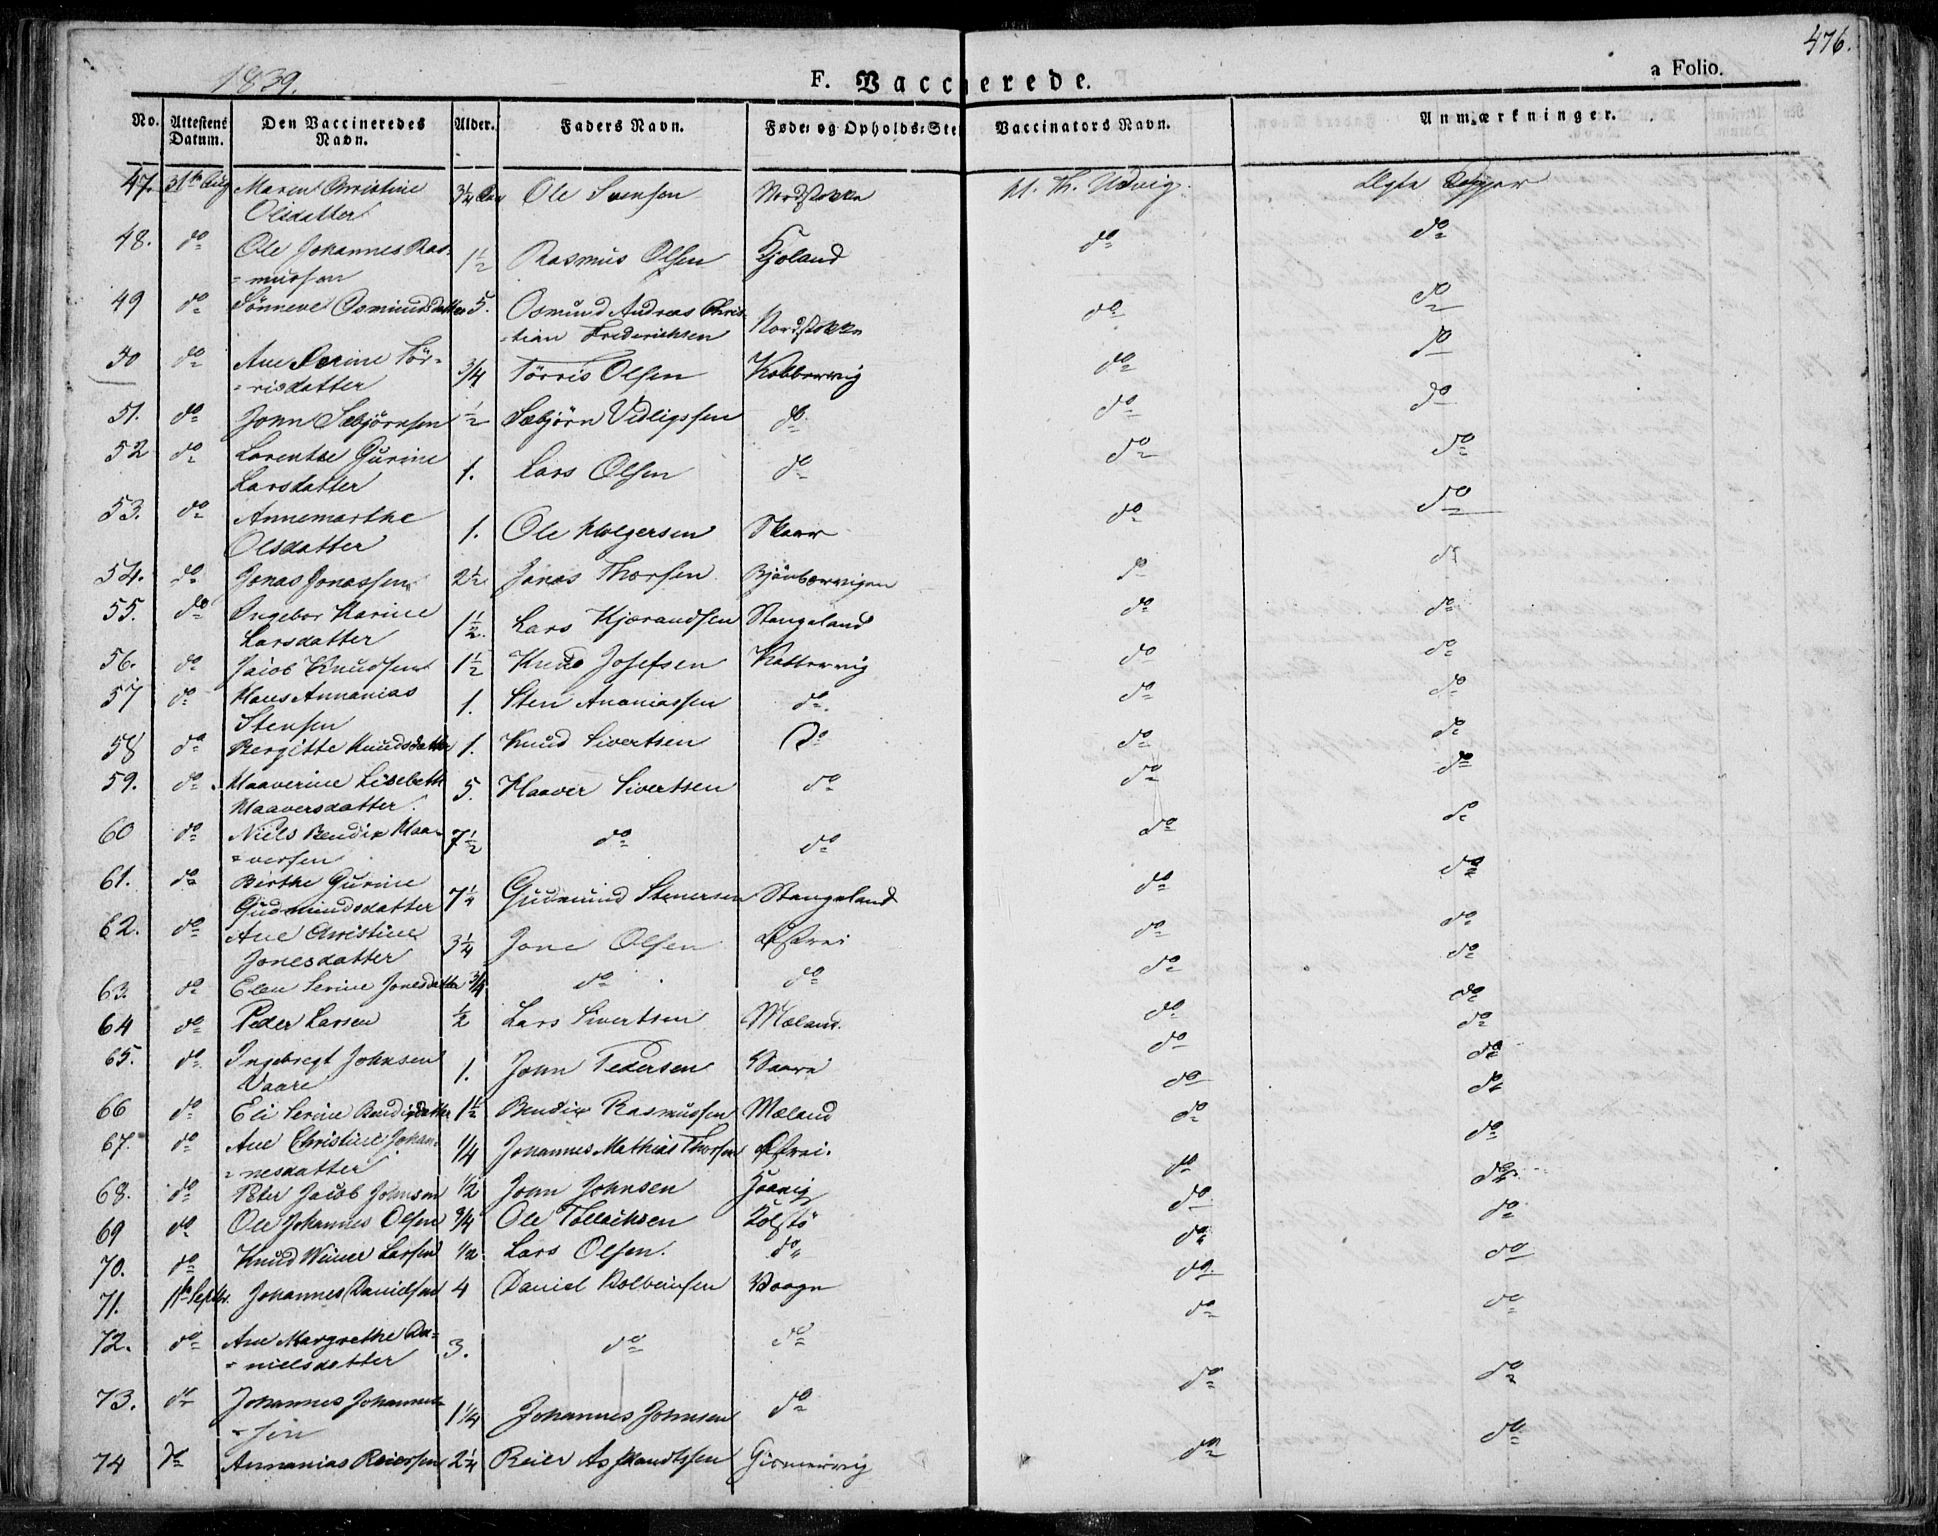 1839.
F. Vaccinerede.
a Folio.
476.
No. Attestens Datum. Den Vaccineredes Navn. Alder. Faders Navn. Føde- og Opholds-Ste Vaccinators Navn. Anmærkninger.
47. 31te Aug Maren Christine 3/4 Aar Ole Svensen Nordstokke H. Th. Udvig. Ægte Kopper
Olsdatter
48. do Ole Johannes Ras- 1½ Rasmus Olsen do do
=mussen
49 do Sönneve Osmundsdatter 5. Osmund Andreas Chris- Nordstokke do do
-tian Frederichsen
50 do Ane Serine Tör- 3/4 Törris Olsen Kobbervig do do
=risdatter
51. do John Sebjörnsen ½ Sebjörn Vidligssen do do do
52 do Lorentse Gurine 1. Lars Olsen do do do
Larsdatter
53. do Annemarthe 1. Ole Holgersen Skaar do do
Olsdatter
54. do Jonas Jonassen 2½ Jonas Thorsen do do
55. do Ingebor Karine 1½ Lars Kjorandsen Stangeland do do
Larsdatter
56. do Jacob Knudsen 1½ Knud Josefsen Kattervig do do
57 do Hans Annanias 1. Sten Ananiassen do do do
Stensen
58 do Bergitte Knudsdatter 1. Knud Sivertsen Do do do
59. do Haaverine Lisebeth 5. Haaver Sivertsen do do do
Haaversdatter.
60 do Niels Bendix Haa- 7½ do do do do
=versen
61. do Birthe Gurine 7¼ Gudmund Stenersen Stangeland do do
Gudmundsdatter
62. do Ane Christine 3¼ Jone Olsen Østrei do do
Jonesdatter
63. do Elen Serine Jonesdatter 3/4 do do do do
64 do Peder Larsen ½ Lars Sivertsen Mæland. do do
65. do Ingebregt Johnsen 1. John Pedersen Vaare do do
Vaare
66 do Eli Serine Bendixdatter 1½ Bendix Rasmussen Mæland do do
67. do Ane Christine Johan- 1/4 Johannes Mathias Thorsen Østrei. do do
=nesdatter
68. do Peter Jacob Johnsen 1/2 John Johnsen do do
69 do Ole Johannes Olsen 3/4 Ole Tolleichsen Kolstö do do
70. do Knud Weiner Larsen 1/2 Lars Olsen. do do do
71. 1te Septbr. Johannes Danielsen 4 Daniel Kolbeinsen Vaage do do
72. do Ane Margrethe Da- 3. do do do do
=nielsdatter
73. do Johannes Johannes- 1¼ Johannes Johnsen do do do
=sen
74 do Annanias Reiersen 2¼ Reier Asmandssen Gismervig do do